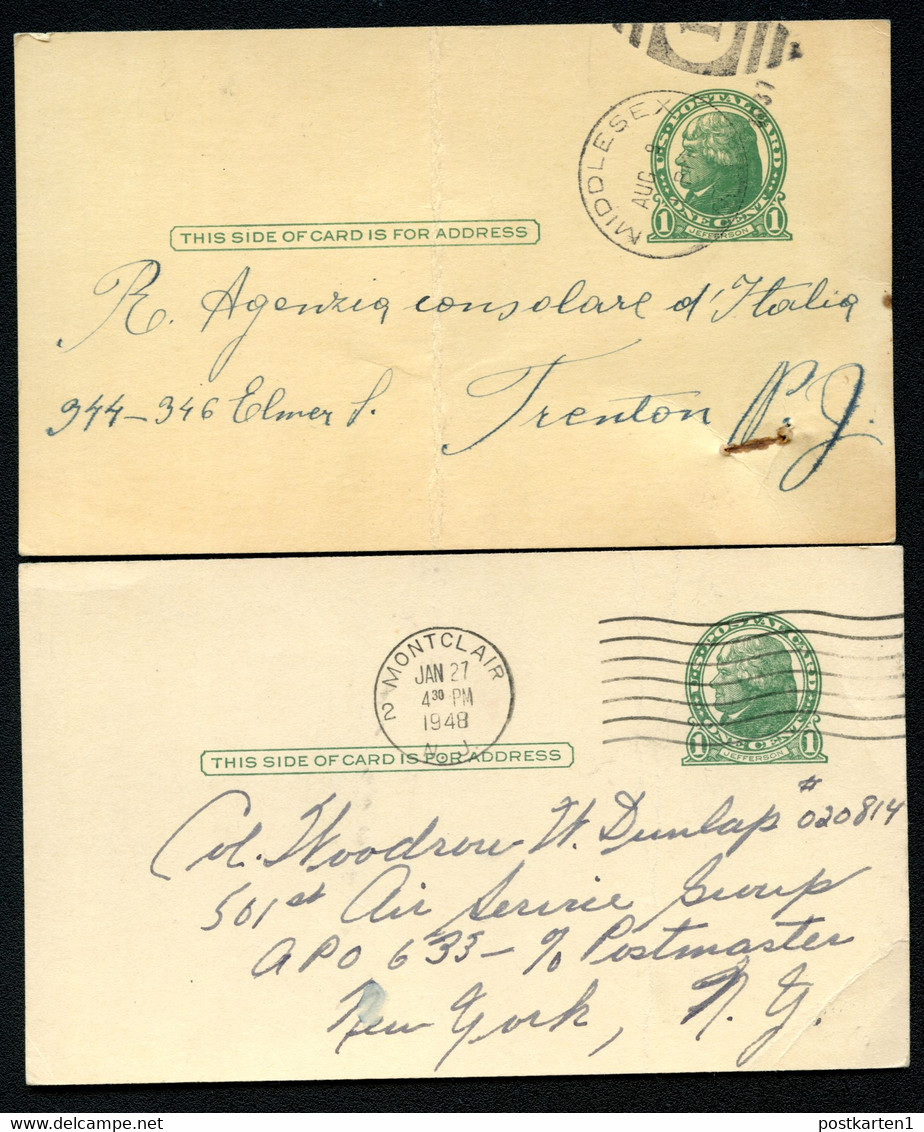 MIDDLESEX
AUG 9
U.S. POSTAL CARD
ONE CENT
1 1
JEFFERSON
THIS SIDE OF CARD IS FOR ADDRESS
R. Agenzia consolare d'Italia
344-346 Elmer S.
Trenton N. J.
2 MONTCLAIR
JAN 27
4 30 PM
1948
N. J.
U.S. POSTAL CARD
ONE CENT
1 1
JEFFERSON
THIS SIDE OF CARD IS FOR ADDRESS
Col. Woodrow W. Dunlap # 020814
501st Air Service Group
APO 633 - % Postmaster
New York, N. Y.
delcampe.net
postkarten1